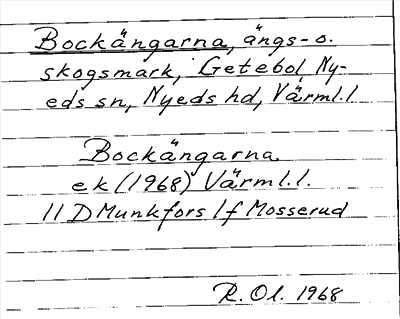 Bockängarna, ängs- o.
skogsmark, Getebol, Ny-
eds sn, Nyeds hd, Värml.l.
Bockängarna.
ek (1968) Värml.l.
11 D Munkfors 1 f Mosserud
R. Ol. 1968